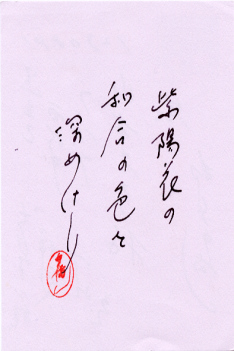 紫陽花の
和合の色を
深めけり